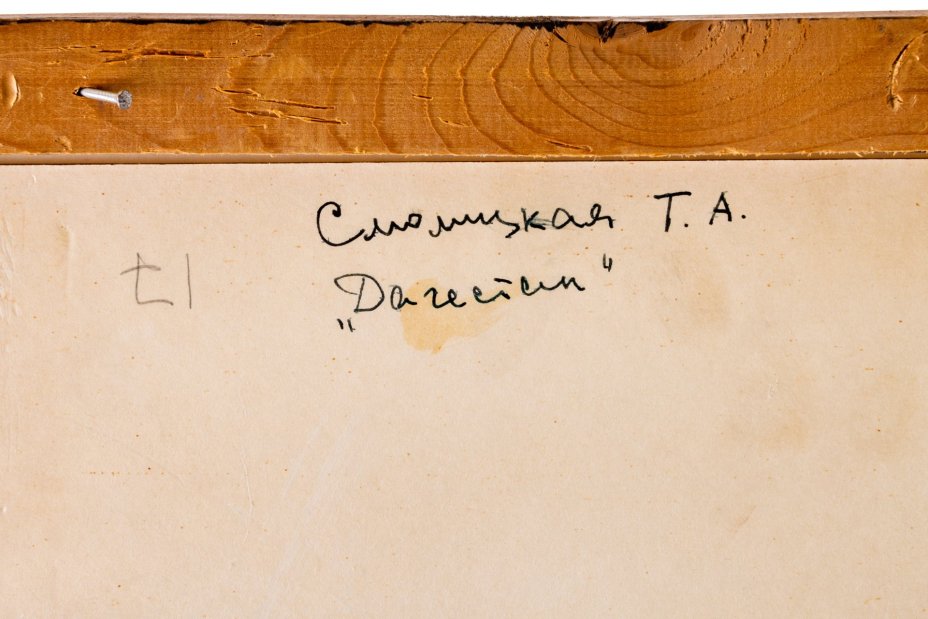 Смолицкая Т. А.
„Дагестан“